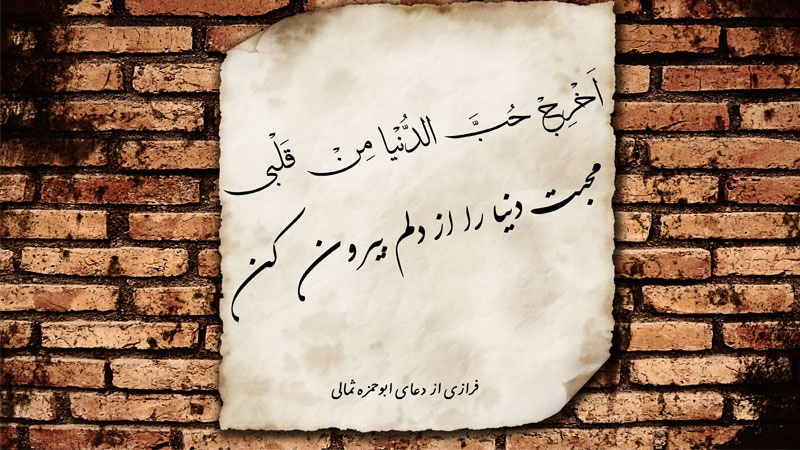 اَخْرِجْ حُبَّ الدُّنْیا مِنْ قَلْبی
محبت دنیا را از دلم بیرون کن
فرازی از دعای ابوحمزه ثمالی